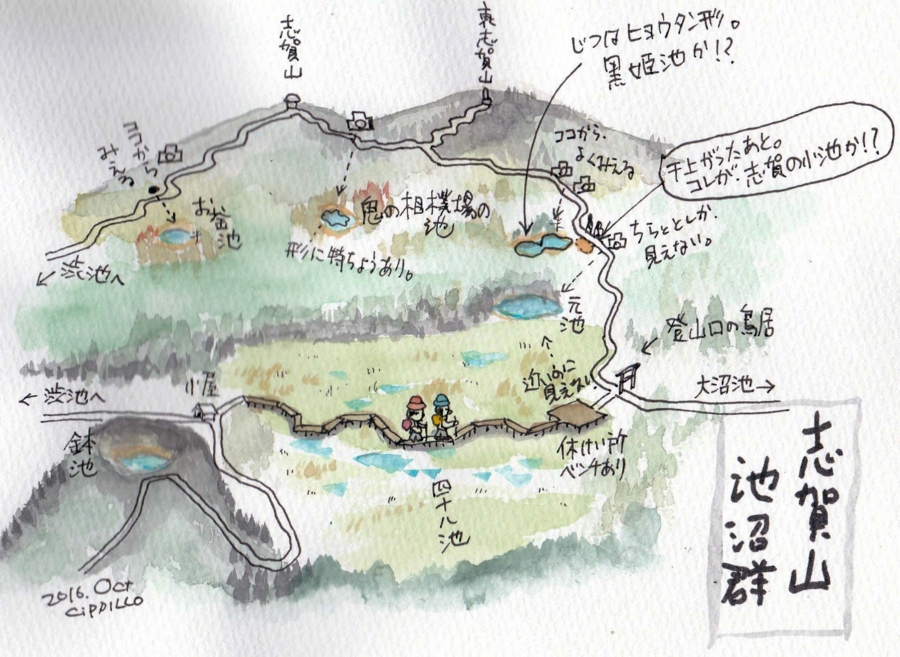 志賀山
裏志賀山
じつはヒョウタン形。
黒姫池か!?
ココから
みえる
ココから、
よくみえる
干上がったあと。
コレが、志賀の小池か!?
お釜池
鬼の相撲場の
池
形に特ちょうあり。
ちらっとしか
見えない。
←渋池へ
元池
近いのに
見えない
登山口の鳥居
←渋池へ
小屋
大沼池→
鉢池
休けい所
ベンチあり
四十八池
志賀山
池沼群
2016.Oct
CIPDILLO